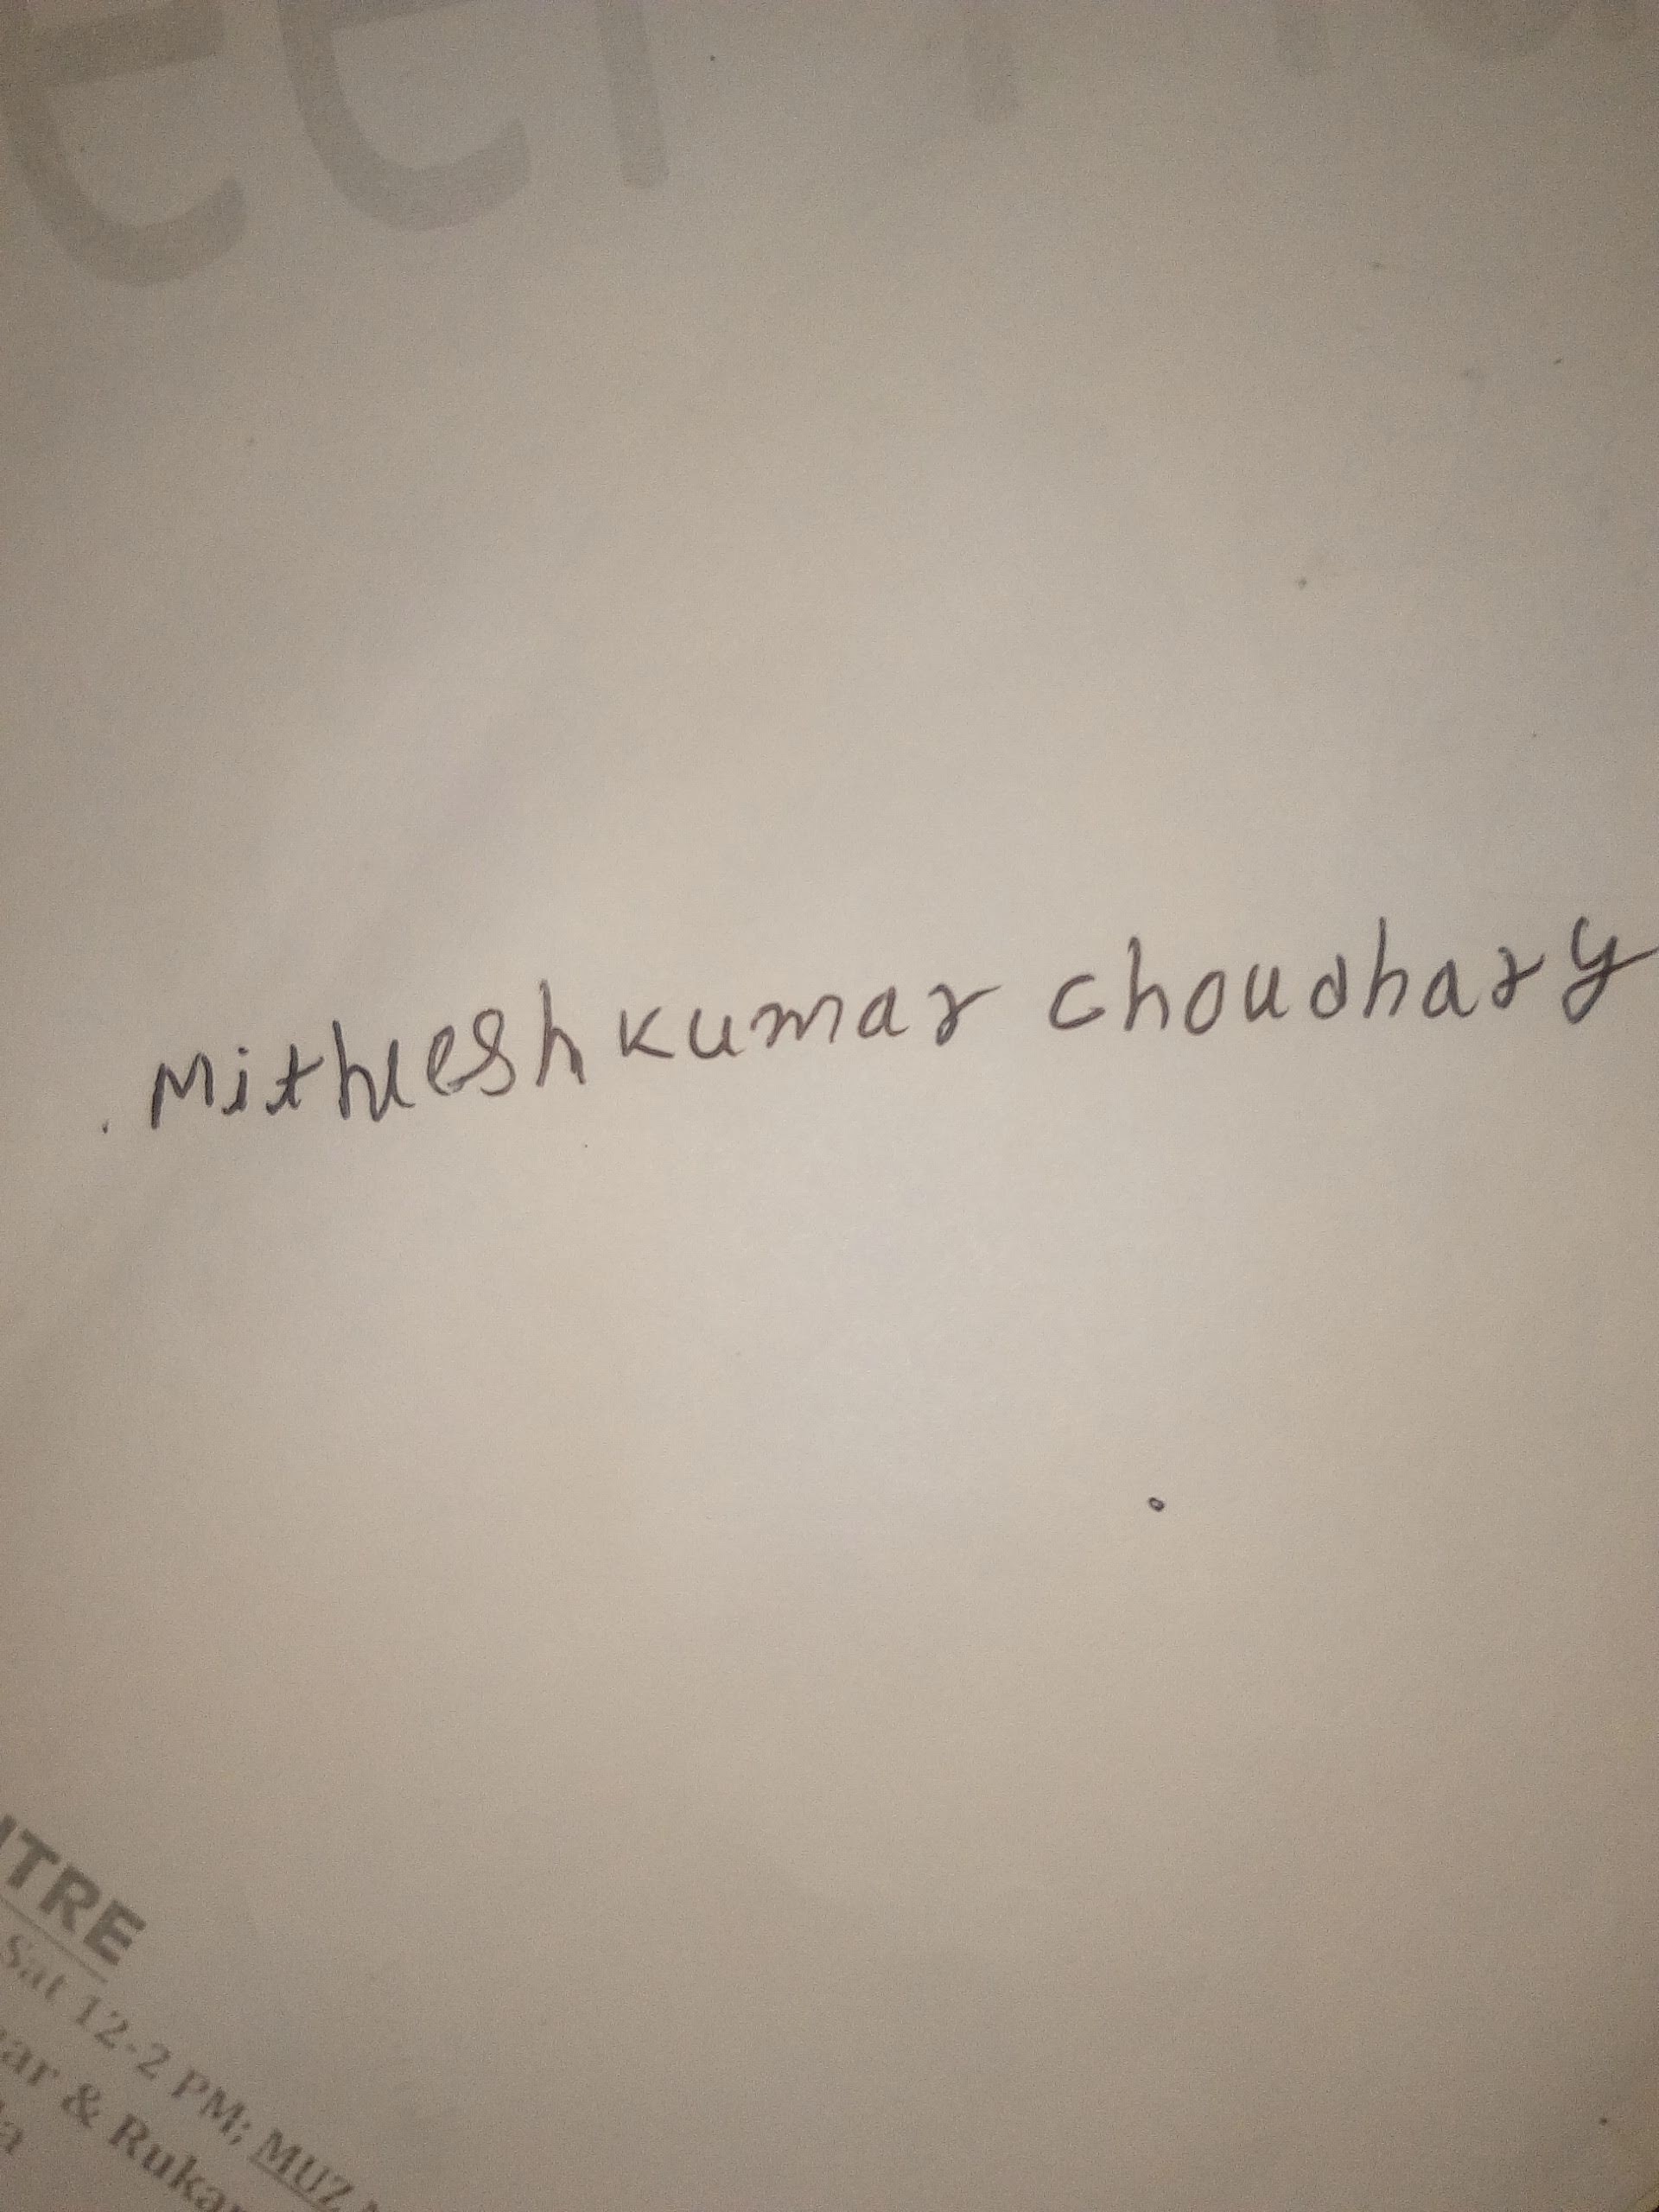 Mithlesh kumar choudhary
NTRE
Sat 12-2 PM; MUZ
ar & Ruka